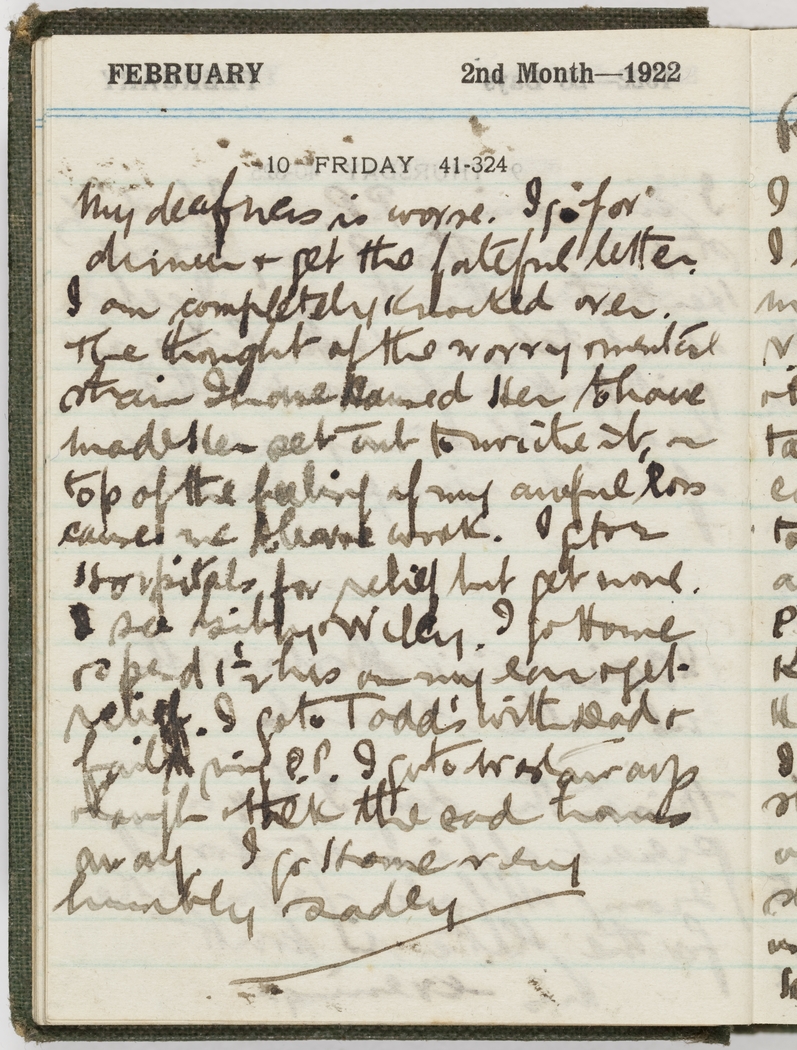 FEBRUARY 2nd Month—1922
10 FRIDAY 41-324
My deafness is worse. I go for
dinner + get the fateful letter.
I am completely knocked over.
The thought of the worry + mental
strain I have caused Her to have
made Her set out to write it, on
top of the feeling of my awful loss
causes me to leave work. I go to
Hospitals for relief but get none.
I see Wiley. I go Home
+ spend 1½ hrs on my ear + get
relief. I go to Todd's with Dad +
fail ring P.P. I go to
laugh + talk the sad hours
away. I go Home very
humbly sadly